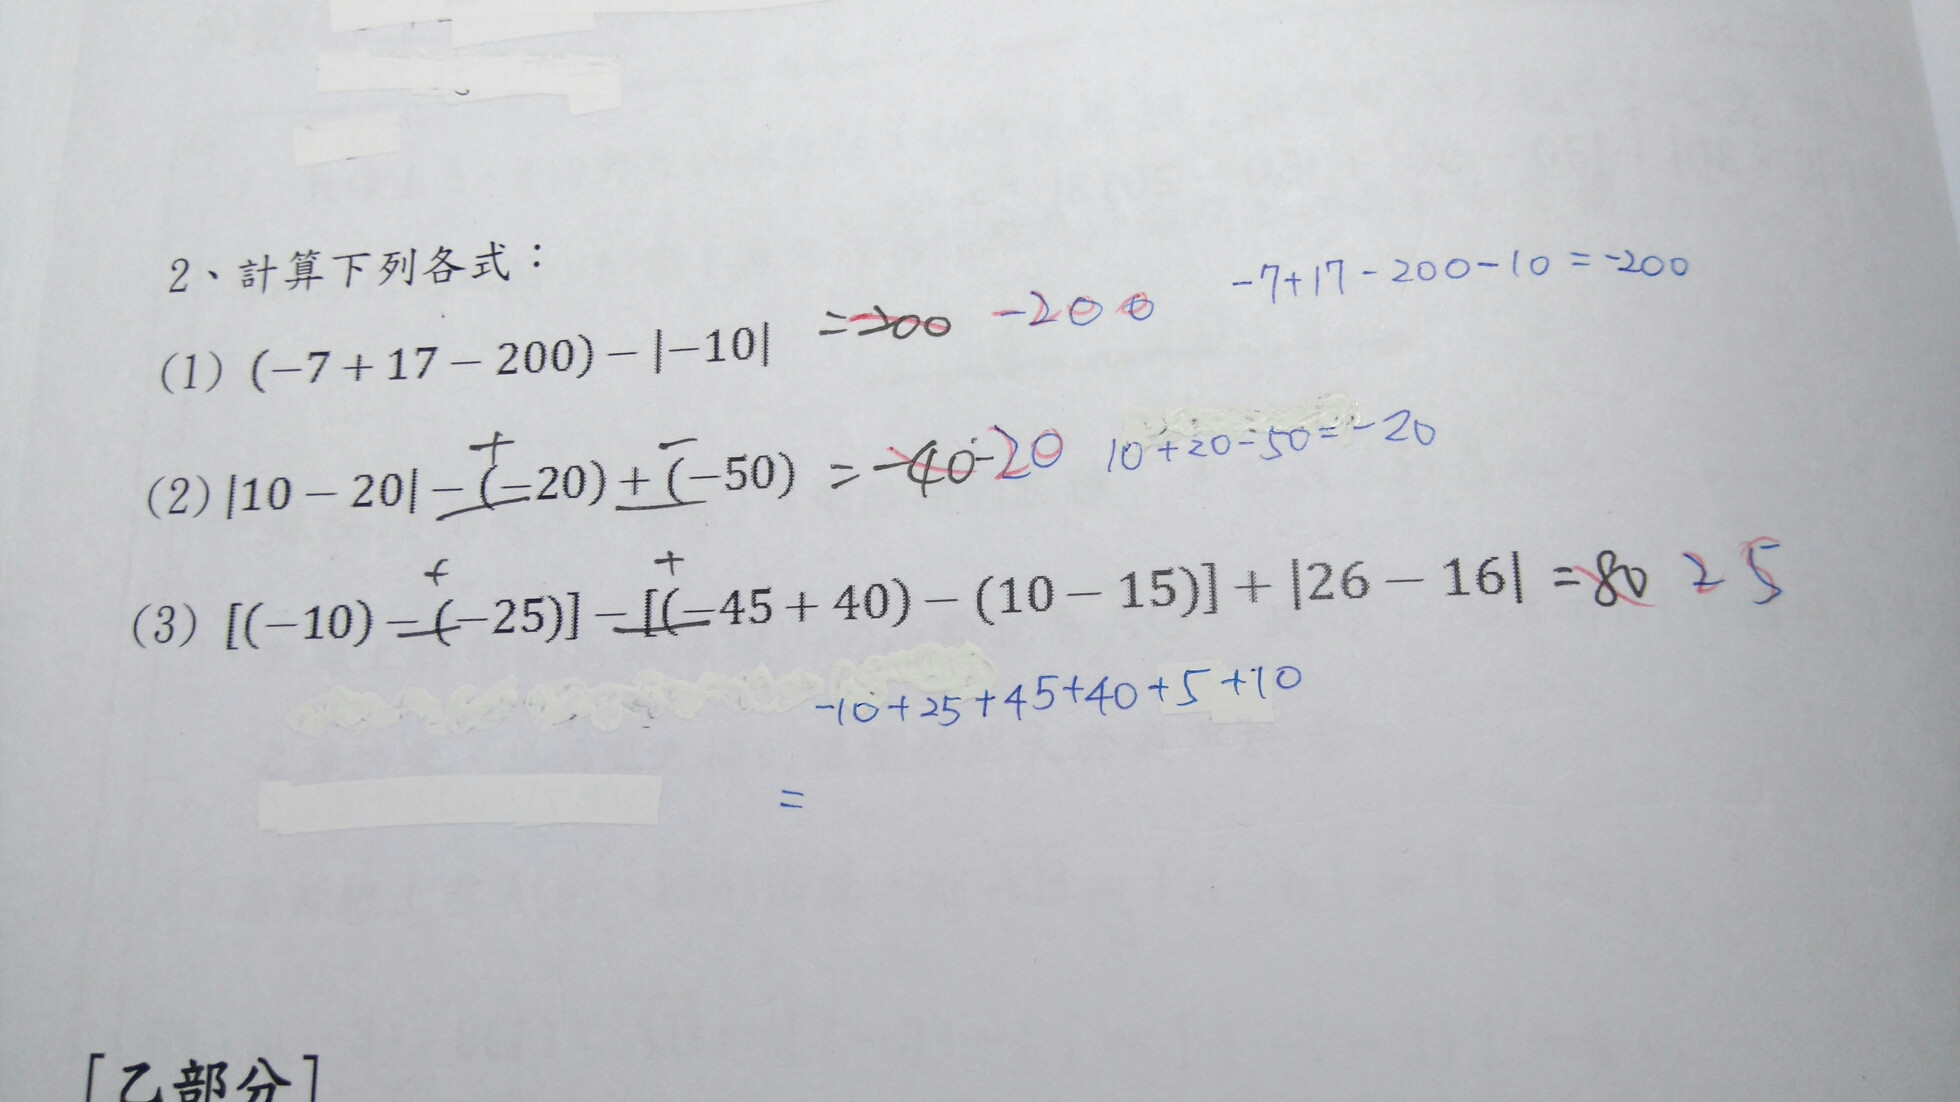 2、計算下列各式：
(1) (−7+17−200)−|−10| =-200 -200 -7+17-200-10=-200
+ -
(2) |10−20|−(−20)+(−50) =-40 -20 10+20-50=-20
+ +
(3) [(−10)−(−25)]−[(−45+40)−(10−15)]+|26−16| =80 25
-10+25+45+40+5+10
=
[乙部分]